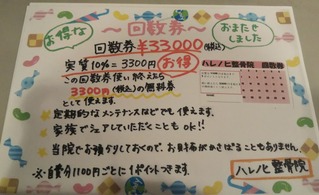 お得な
～回数券～
おまたせしました
回数券 ¥33000(税込)
実質10%=3300円お得
ハレノヒ整骨院 回数券
この回数券使い終えたら
3300円(税込)の無料券
として使えます。
定期的なメンテナンスなどでも使えます。
家族でシェアしていただくこともok!!
当院でお預かりしておくので、お財布がかさばることもありません。
※自費分1100円ごとに1ポイントつきます。
ハレノヒ整骨院